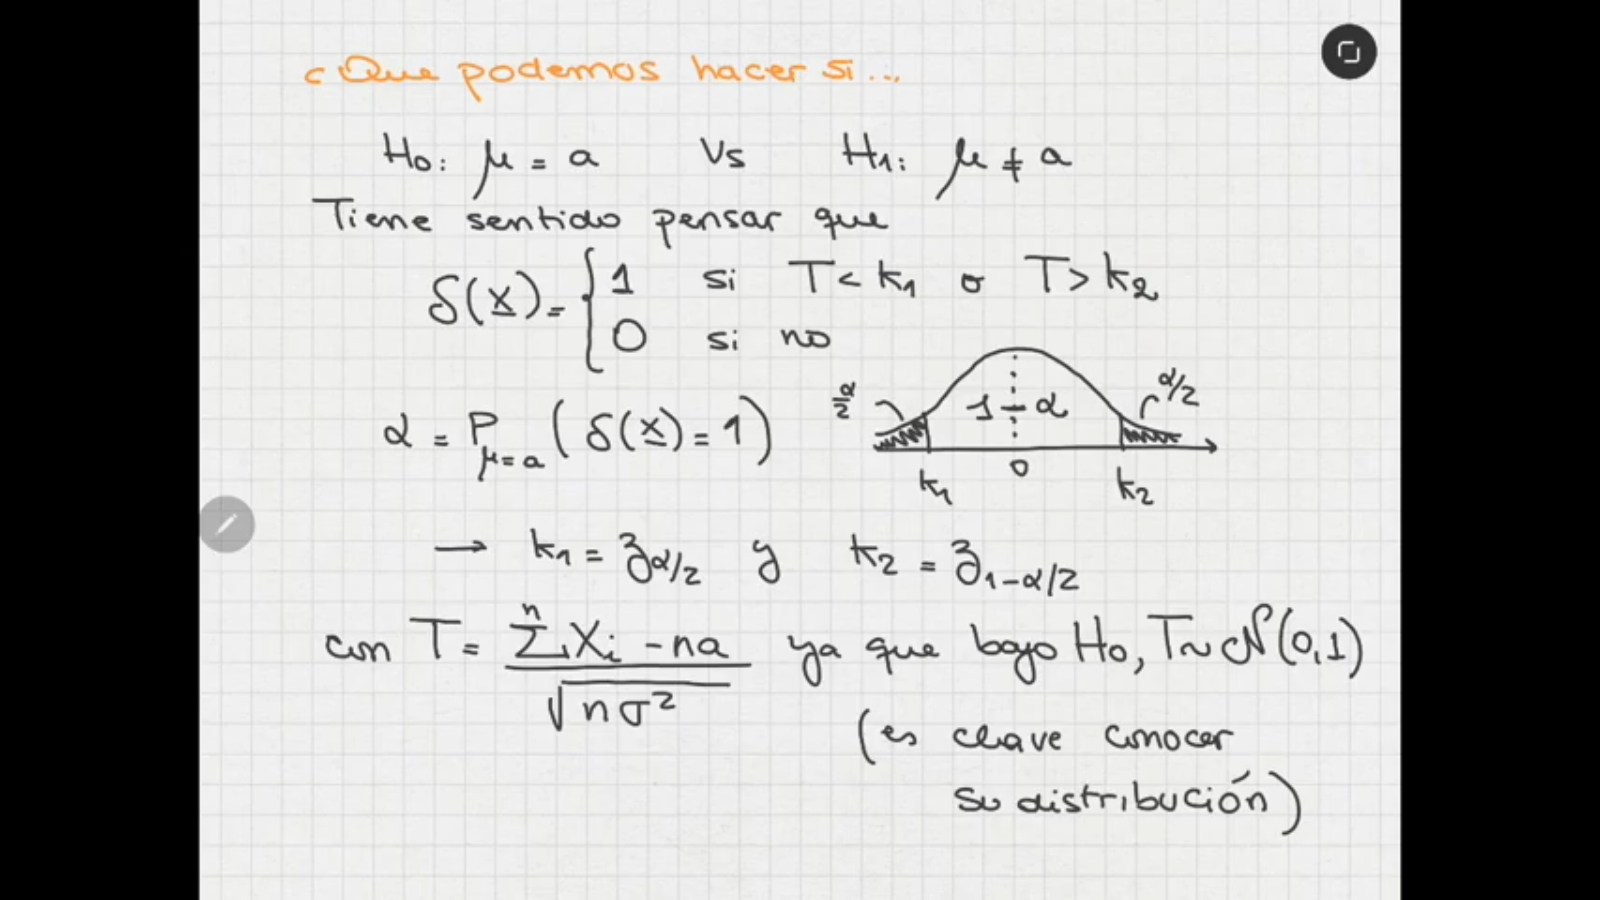 ¿Que podemos hacer si...
H₀: μ = a Vs H₁: μ ≠ a
Tiene sentido pensar que
δ(X) = { 1 si T < k₁ o T > k₂
0 si no
α/2 1 - α α/2
α = P_{μ=a} (δ(X) = 1)
k₁ 0 k₂
→ k₁ = z_{α/2} y k₂ = z_{1-α/2}
con T = (∑ⁿ Xᵢ - na) / √(nσ²) ya que bajo H₀, T ~ N(0,1)
(es clave conocer
su distribución)